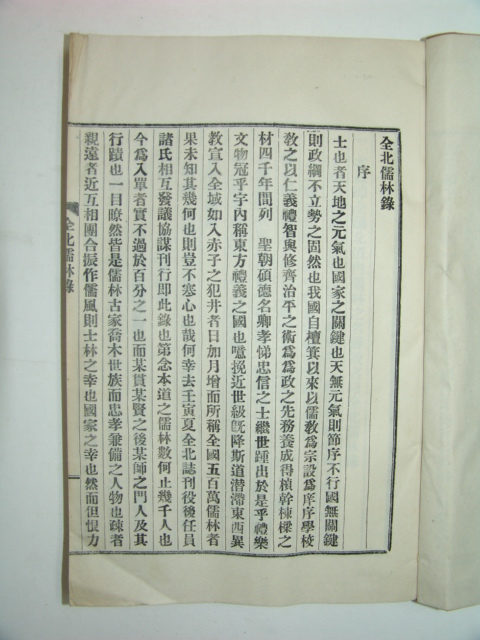 全北儒林錄
序
士也者天地之元氣也國家之關鍵也天無元氣則節序不行國無關鍵
則政綱不立勢之固然也我國自檀箕以來以儒敎爲宗設爲庠序學校
敎之以仁義禮智與修齊治平之術爲爲政之先務養成得楨幹棟樑之
材四千年間列　聖朝碩德名卿孝悌忠信之士繼世踵出於是乎禮樂
文物冠乎宇內稱東方禮義之國也噫挽近世級旣降斯道潜滯東西異
敎宣入全域如入赤子之犯井者日加月增而所稱全國五百萬儒林者
果未知其幾何也則豈不寒心也哉何幸去壬寅夏全北誌刊役後任員
諸氏相互發議協謀刊行即此錄也第念本道之儒林數何止幾千人也
今爲入單者實不過於百分之一也而某貫某賢之後某師之門人及其
行蹟也一目瞭然皆是儒林古家喬木世族而忠孝兼備之人物也疎者
親遠者近互相團合振作儒風則士林之幸也國家之幸也然而但恨力
全北儒林錄